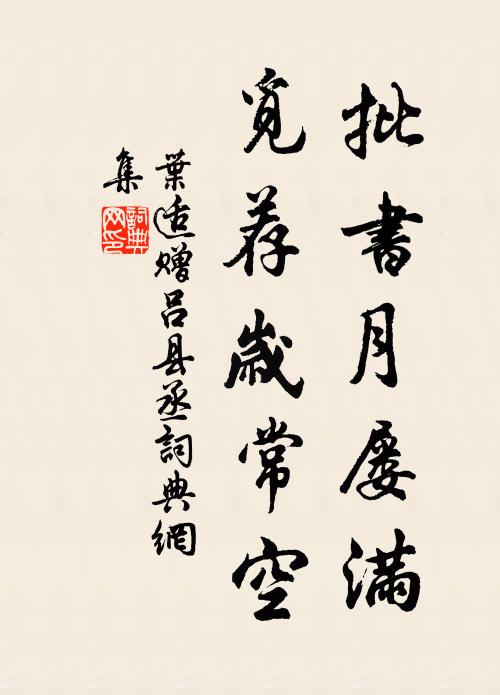 批書月屡滿
覓荐歲常空
葉适贈吕县丞詞典網
集
詞典網印